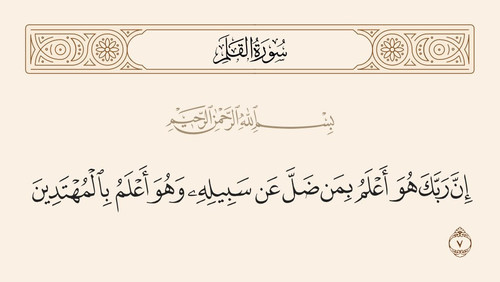 سُورَةُ القَلَمِ
بِسْمِ اللَّهِ الرَّحْمَٰنِ الرَّحِيمِ
إِنَّ رَبَّكَ هُوَ أَعْلَمُ بِمَن ضَلَّ عَن سَبِيلِهِۦ وَهُوَ أَعْلَمُ بِٱلْمُهْتَدِينَ
٧